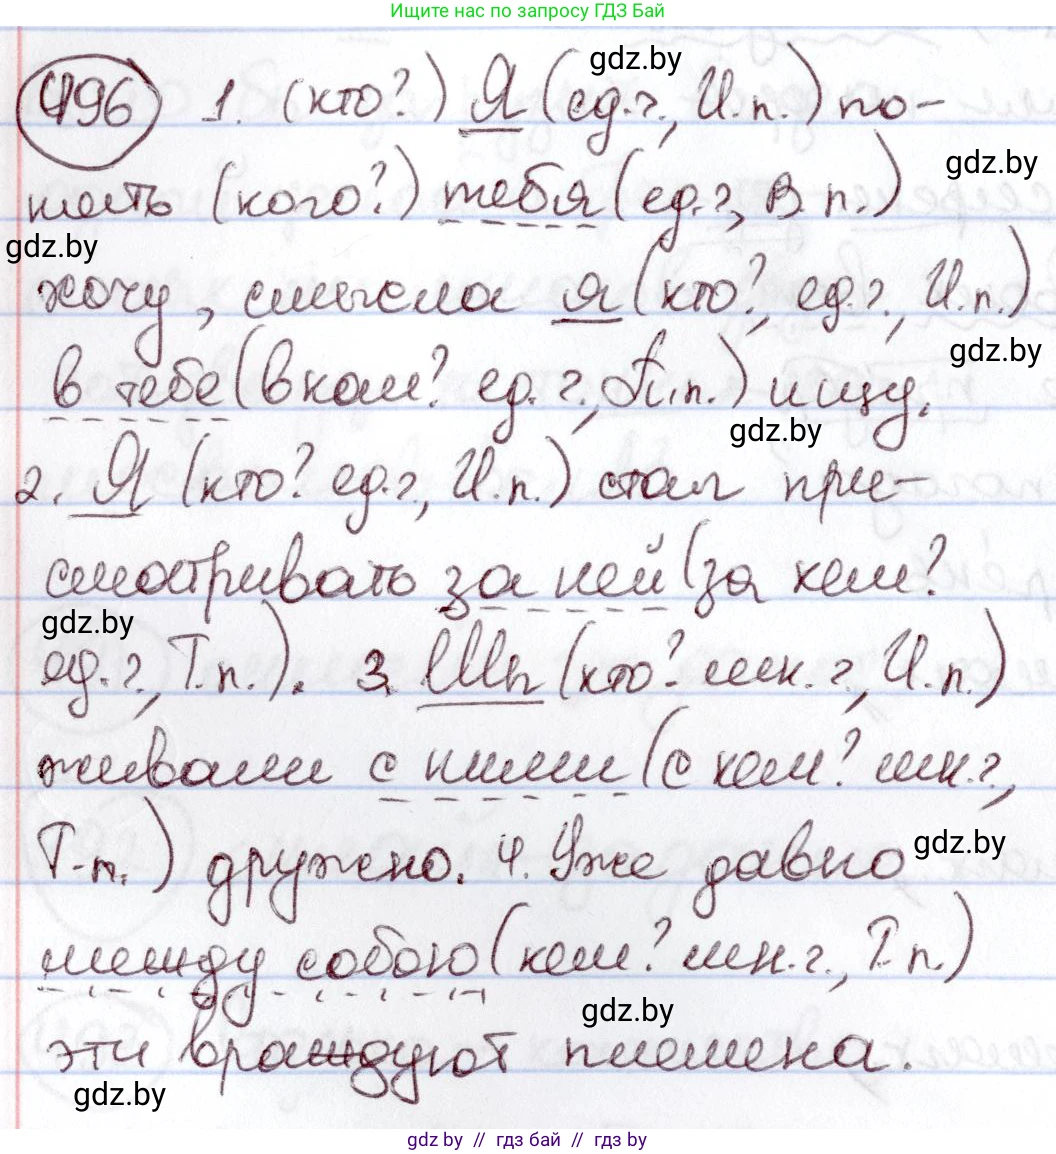 Ищите нас по запросу ГДЗ Бай
gdz.by
496 1. (кто?) Я (ед.ч., И.п.) по-
gdz.by
нять (кого?) тебя (ед.ч., В.п.)
gdz.by
хочу, смысла я (кто?, ед.ч., И.п.)
gdz.by
в тебе (в ком? ед.ч., П.п.) ищу.
gdz.by
2. Я (кто? ед.ч., И.п.) стал при-
сматривать за ней (за кем?
gdz.by
ед.ч., Т.п.). 3. Мы (кто? мн.ч., И.п.)
живали с ними (с кем? мн.ч.,
Т.п.) дружно. 4. Уже давно
gdz.by
между собою (кем? мн.ч., Т.п.)
gdz.by
эти враждуют племена.
gdz.by
gdz by // гдз бай // gdz by